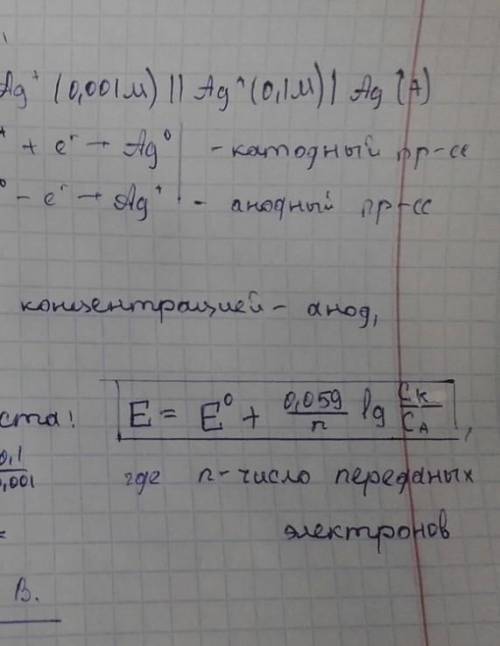 Ag⁺ (0,001М) || Ag⁺ (0,1М) | Ag (А)
⁺ + e⁻ → Ag⁰ | - катодный пр-сс
⁰ - e⁻ → Ag⁺ | - анодный пр-сс
концентрацией - анод,
ста! E = E⁰ + 0,059/n lg Cк/CА ,
0,1/0,001 где n - число переданых
= электронов
В.